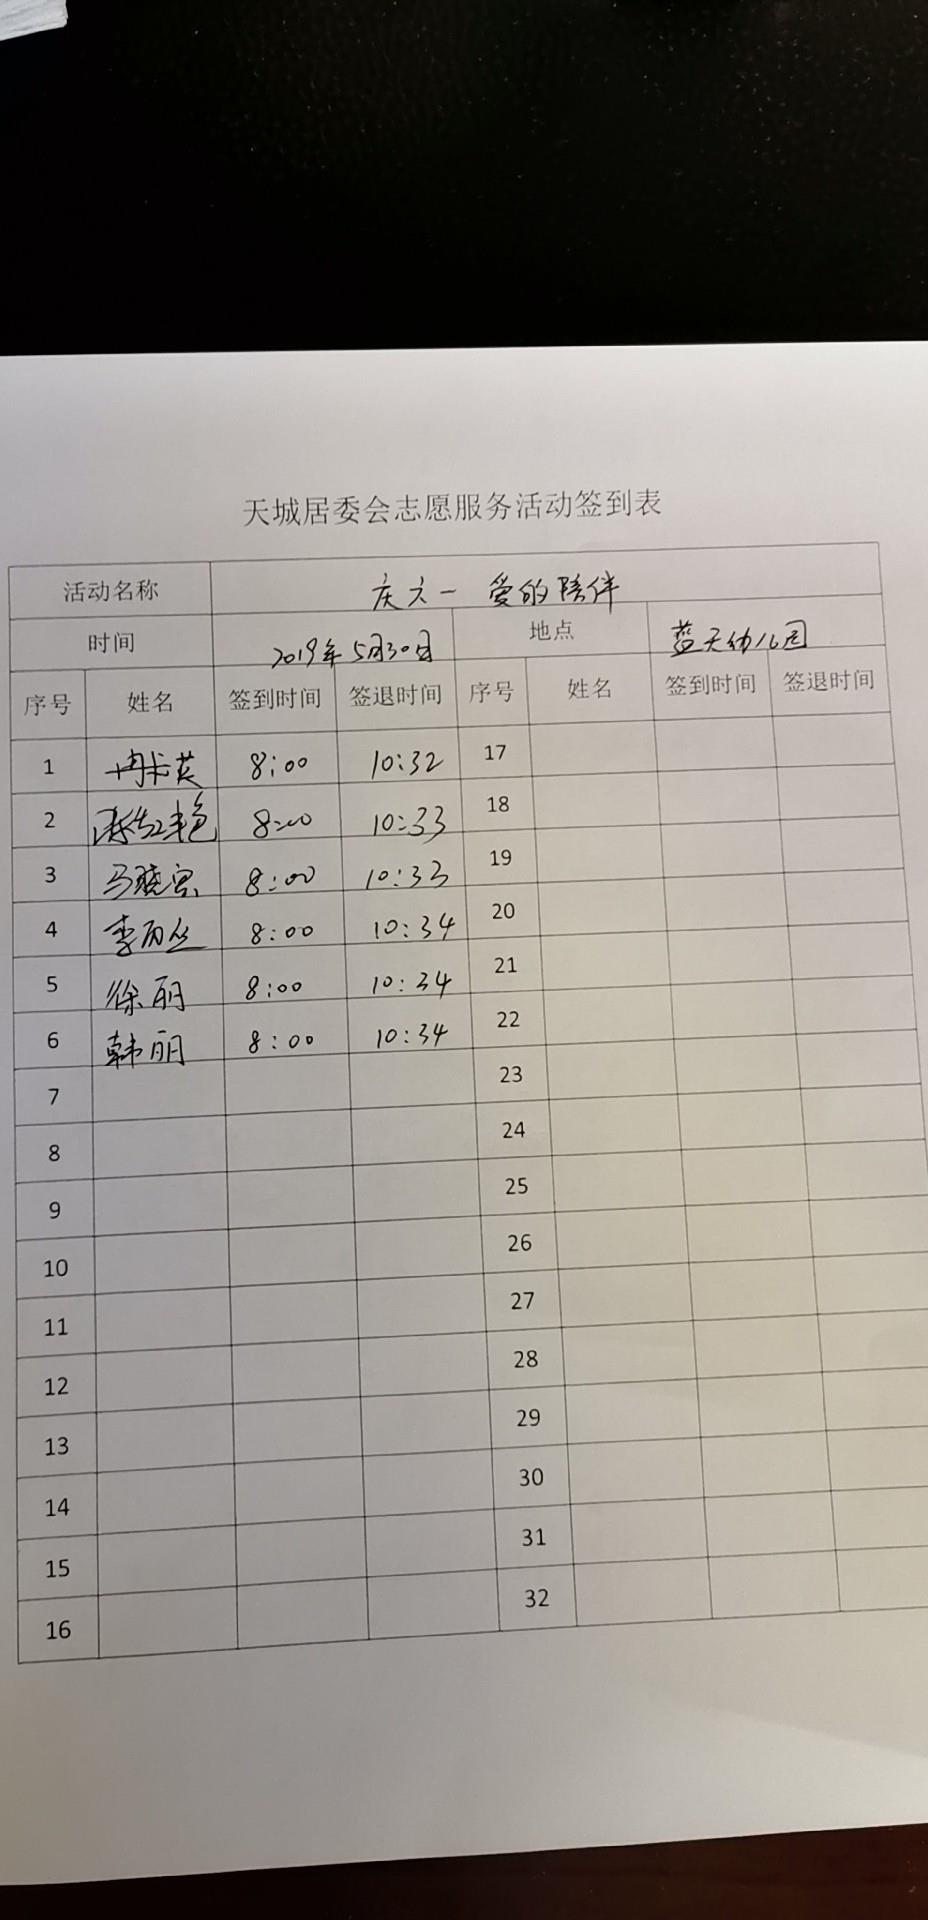 天城居委会志愿服务活动签到表
活动名称 庆六一 爱的陪伴
时间 2019年5月30日 地点 蓝天幼儿园
序号 姓名 签到时间 签退时间 序号 姓名 签到时间 签退时间
1 8:00 10:32 17
2 8:00 10:33 18
3 马晓 8:00 10:33 19
4 李丽丝 8:00 10:34 20
5 徐丽 8:00 10:34 21
6 韩丽 8:00 10:34 22
7 23
8 24
9 25
10 26
11 27
12 28
13 29
14 30
15 31
16 32